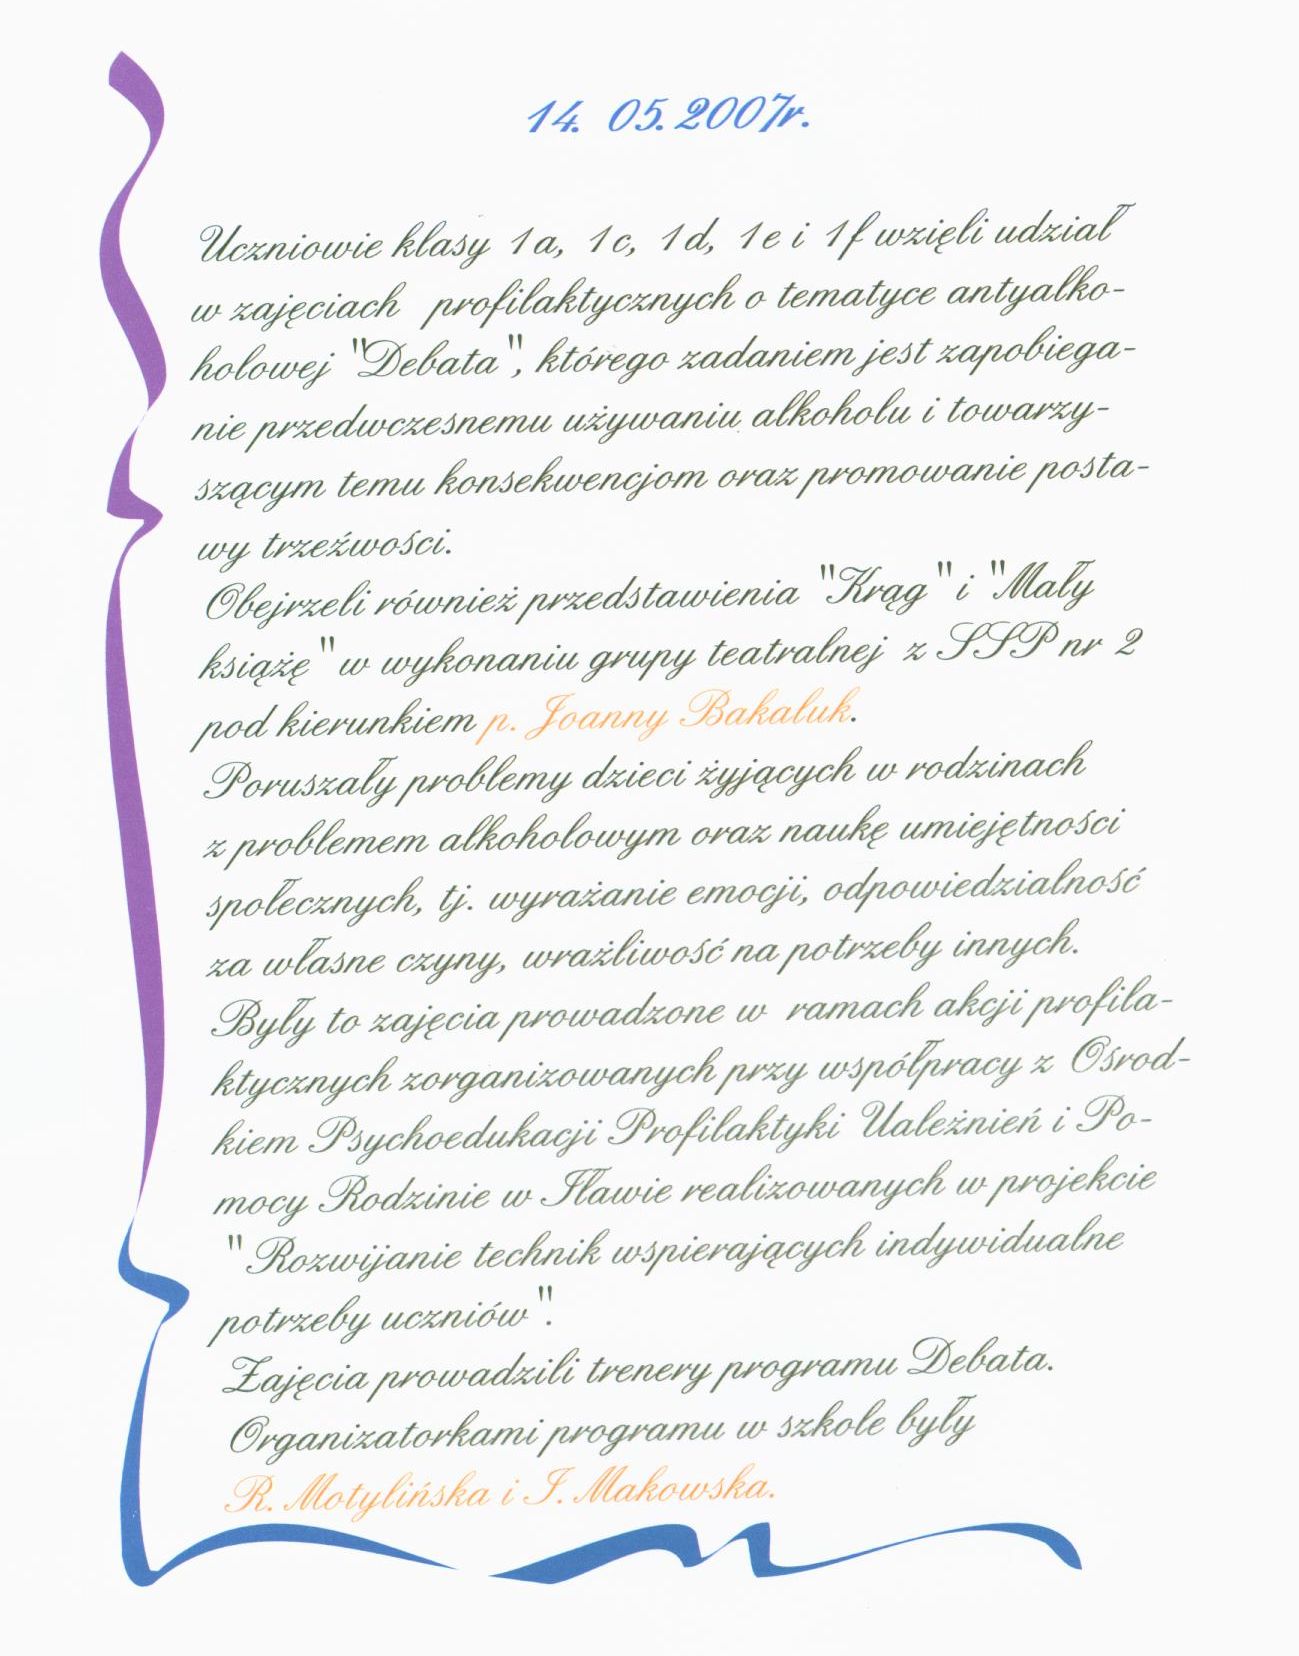 14. 05. 2007r.
Uczniowie klasy 1a, 1c, 1d, 1e i 1f wzięli udział
w zajęciach profilaktycznych o tematyce antyalko-
holowej "Debata", którego zadaniem jest zapobiega-
nie przedwczesnemu używaniu alkoholu i towarzy-
szącym temu konsekwencjom oraz promowanie posta-
wy trzeźwości.
Obejrzeli również przedstawienia "Krąg" i "Mały
książę" w wykonaniu grupy teatralnej z SSP nr 2
pod kierunkiem p. Joanny Bakaluk.
Poruszały problemy dzieci żyjących w rodzinach
z problemem alkoholowym oraz naukę umiejętności
społecznych, tj. wyrażanie emocji, odpowiedzialność
za własne czyny, wrażliwość na potrzeby innych.
Były to zajęcia prowadzone w ramach akcji profila-
ktycznych zorganizowanych przy współpracy z Ośrod-
kiem Psychoedukacji Profilaktyki Uależnień i Po-
mocy Rodzinie w Iławie realizowanych w projekcie
" Rozwijanie technik wspierających indywidualne
potrzeby uczniów".
Zajęcia prowadzili trenery programu Debata.
Organizatorkami programu w szkole były
R. Motylińska i I. Makowska.